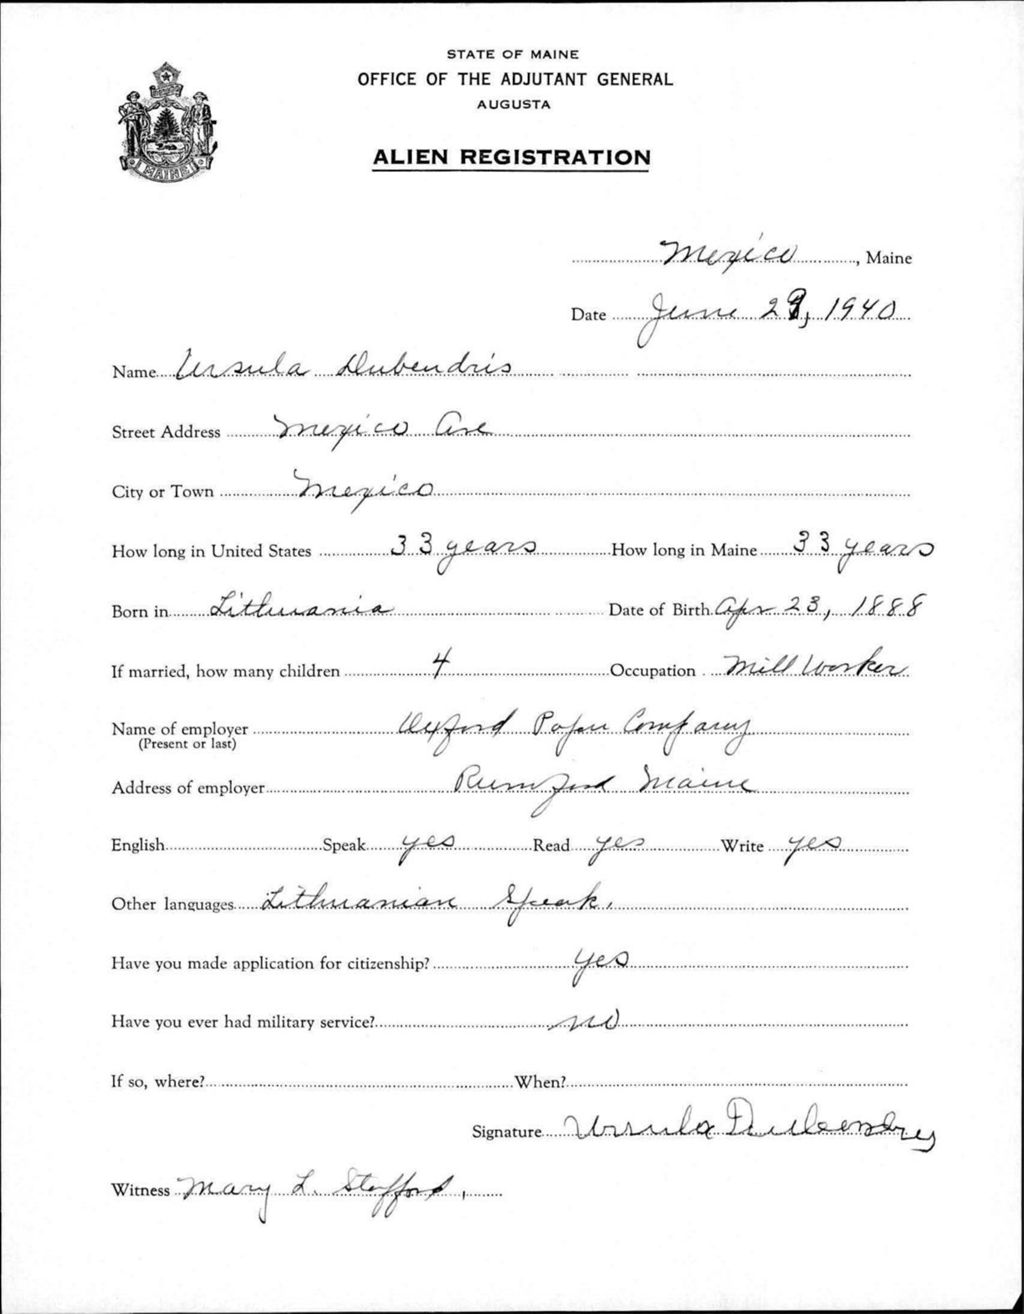 STATE OF MAINE
OFFICE OF THE ADJUTANT GENERAL
AUGUSTA
ALIEN REGISTRATION
MAINE
Mexico, Maine
Date June 29, 1940
Name Ursula Dubendris
Street Address Mexico Ave
City or Town Mexico
How long in United States 33 years How long in Maine 33 years
Born in Lithuania Date of Birth Apr 23, 1888
If married, how many children 4 Occupation Mill Worker
Name of employer Oxford Paper Company
(Present or last)
Address of employer Rumford Maine
English Speak yes Read yes Write yes
Other languages Lithuanian Speak.
Have you made application for citizenship? yes
Have you ever had military service? no
If so, where? When?
Signature Ursula
Witness Mary L. Stafford,